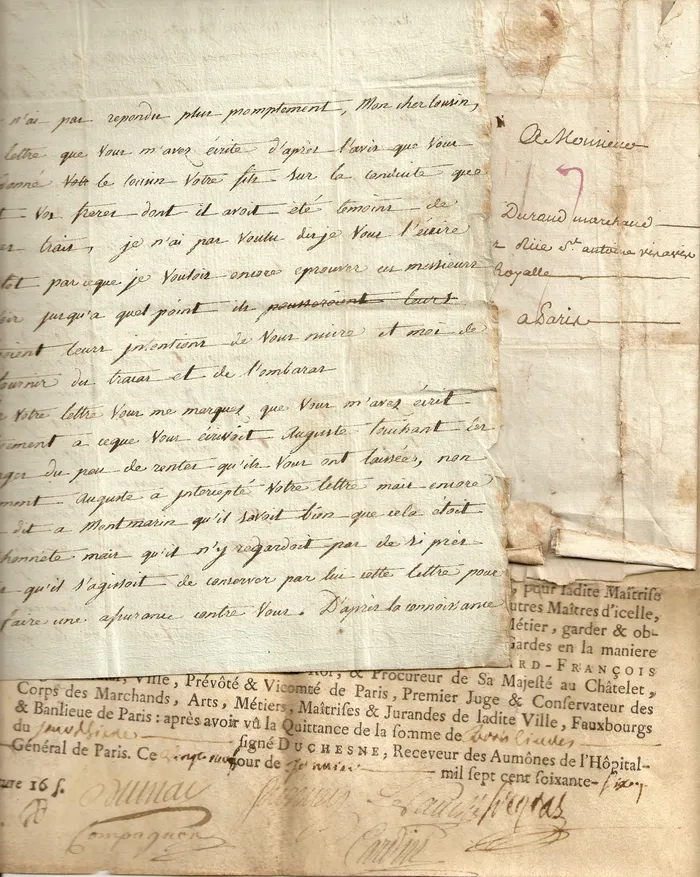 n'ai pas repondu plus promptement, Mon cher Cousin,
lettre que Vous m'avez écrite d'après l'avis que Vous
donné le Cousin Votre fils sur la conduite que
Vos freres dont il avoit été temoins de
trais, je n'ai pas voulu dis je Vous l'écrire
parceque je Voulois encore eprouver ces messieurs
jusqu'a quel point ils pousseroient leurs
leurs intentions de Vous nuire et moi de
du tracas et de l'embaras
Votre lettre Vous me marquez que Vous m'avez écrit
a ceque Vous écrivoit Auguste touchant les
du peu de rentes qu'ils Vous ont laissées, non
Auguste a intercepté Votre lettre mais encore
dit a Montmarin qu'il savoit bien que cela étoit
honnete mais qu'il n'y regardoit pas de si près
qu'il s'agissoit de conserver par lui cette lettre pour
faire une assurance contre Vous. D'après la connoissance
A Monsieur
Durand marchand
Rüe St. antoine
Royalle
a Paris
, pour ladite Maîtrise
utres Maîtres d'icelle,
Métier, garder & ob-
Gardes en la maniere
RD-FRANÇOIS
, Ville, Prévôté & Vicomté de Paris, Premier Juge & Conservateur des
& Procureur de Sa Majesté au Châtelet,
Corps des Marchands, Arts, Métiers, Maîtrises & Jurandes de ladite Ville, Fauxbourgs
& Banlieue de Paris : après avoir vû la Quittance de la somme de trois livres
du signé DUCHESNE, Receveur des Aumônes de l'Hôpital-
Général de Paris. Ce jour de Janvier mil sept cent soixante-
ture 16 s.
Compagnon